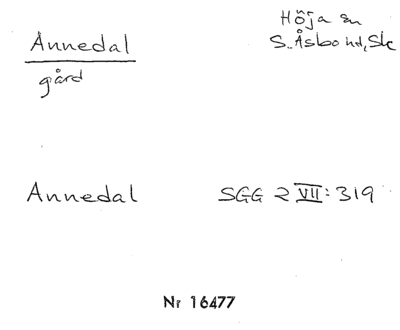 Annedal
gård
Höja sn
S. Åsbo hd, Sk
Annedal SGG 2 VII: 319
Nr 16477